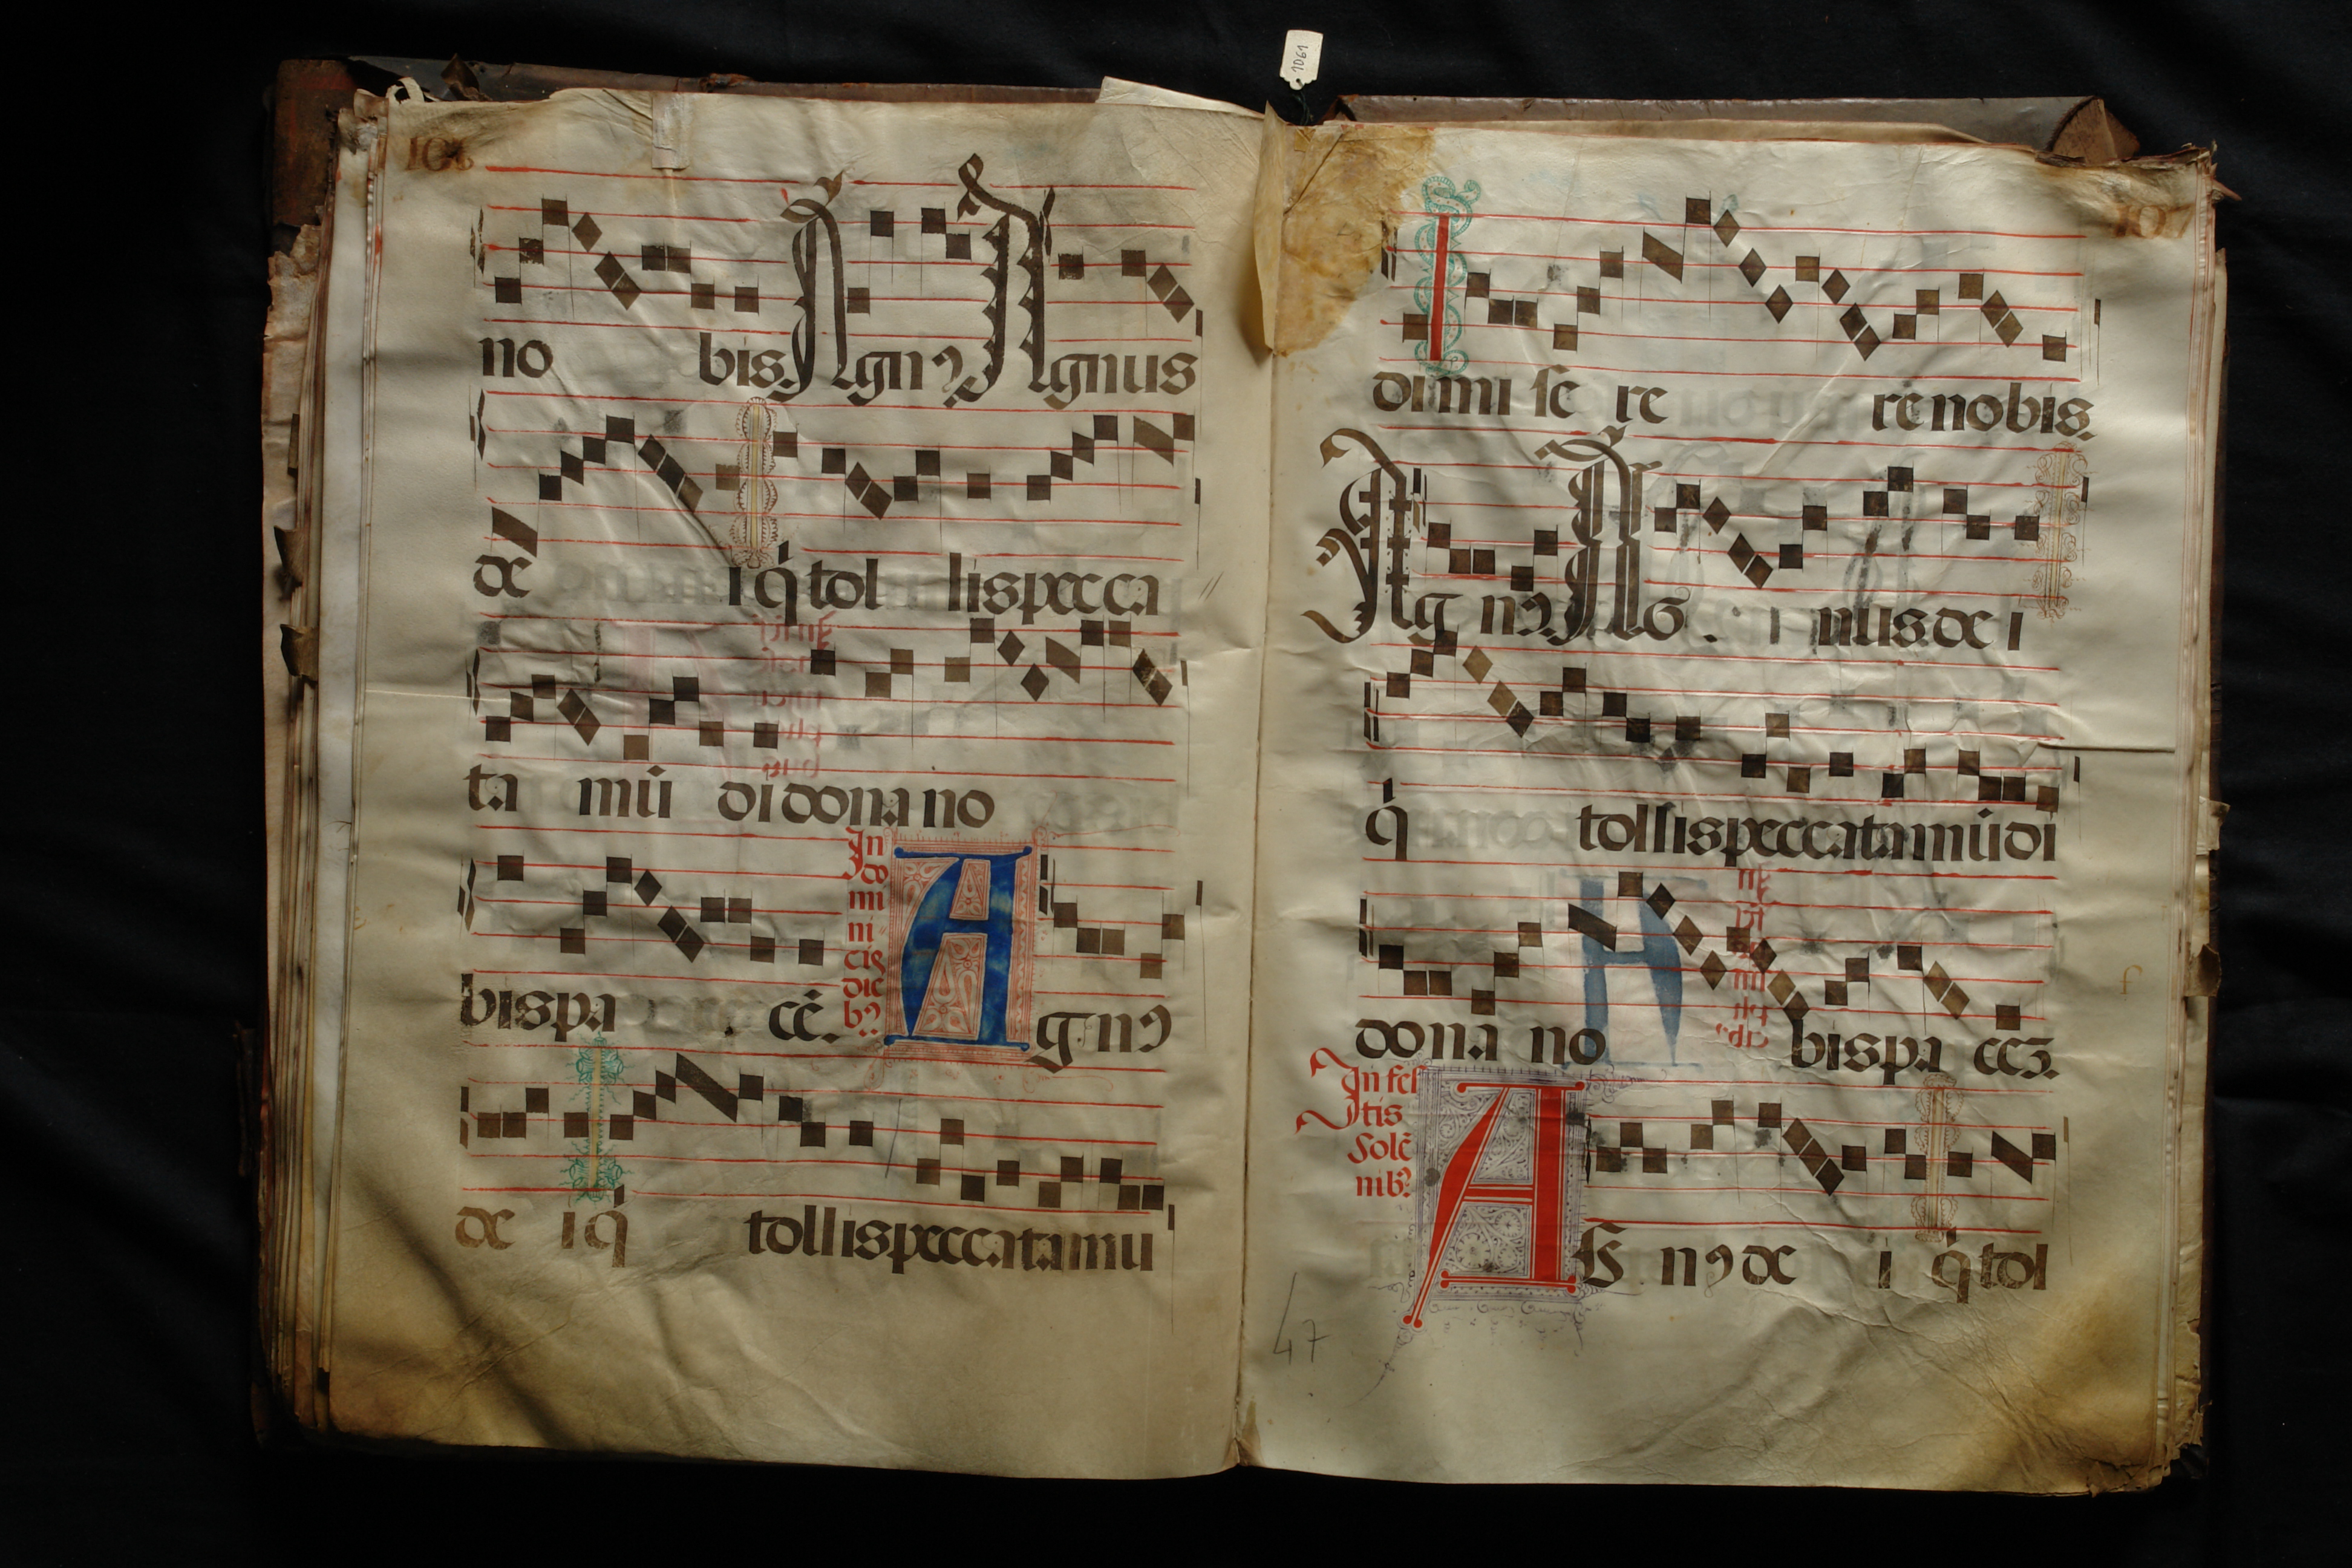 1061
no bis. Agnꝯ Agnus
de i q̇ tol lis pecca
ta mū di dona no
In do mi ni cis die bꝯ
bis pa cē. Agnꝯ
de i q̇ tollis peccata mu
di mi se re re nobis.
Ag nꝯ. AG nus. de i
q̇ tollis peccata mūdi
dona no bis pa cē.
In fes tis Solē nibꝯ
AG nꝯ de i q̇ tol
47